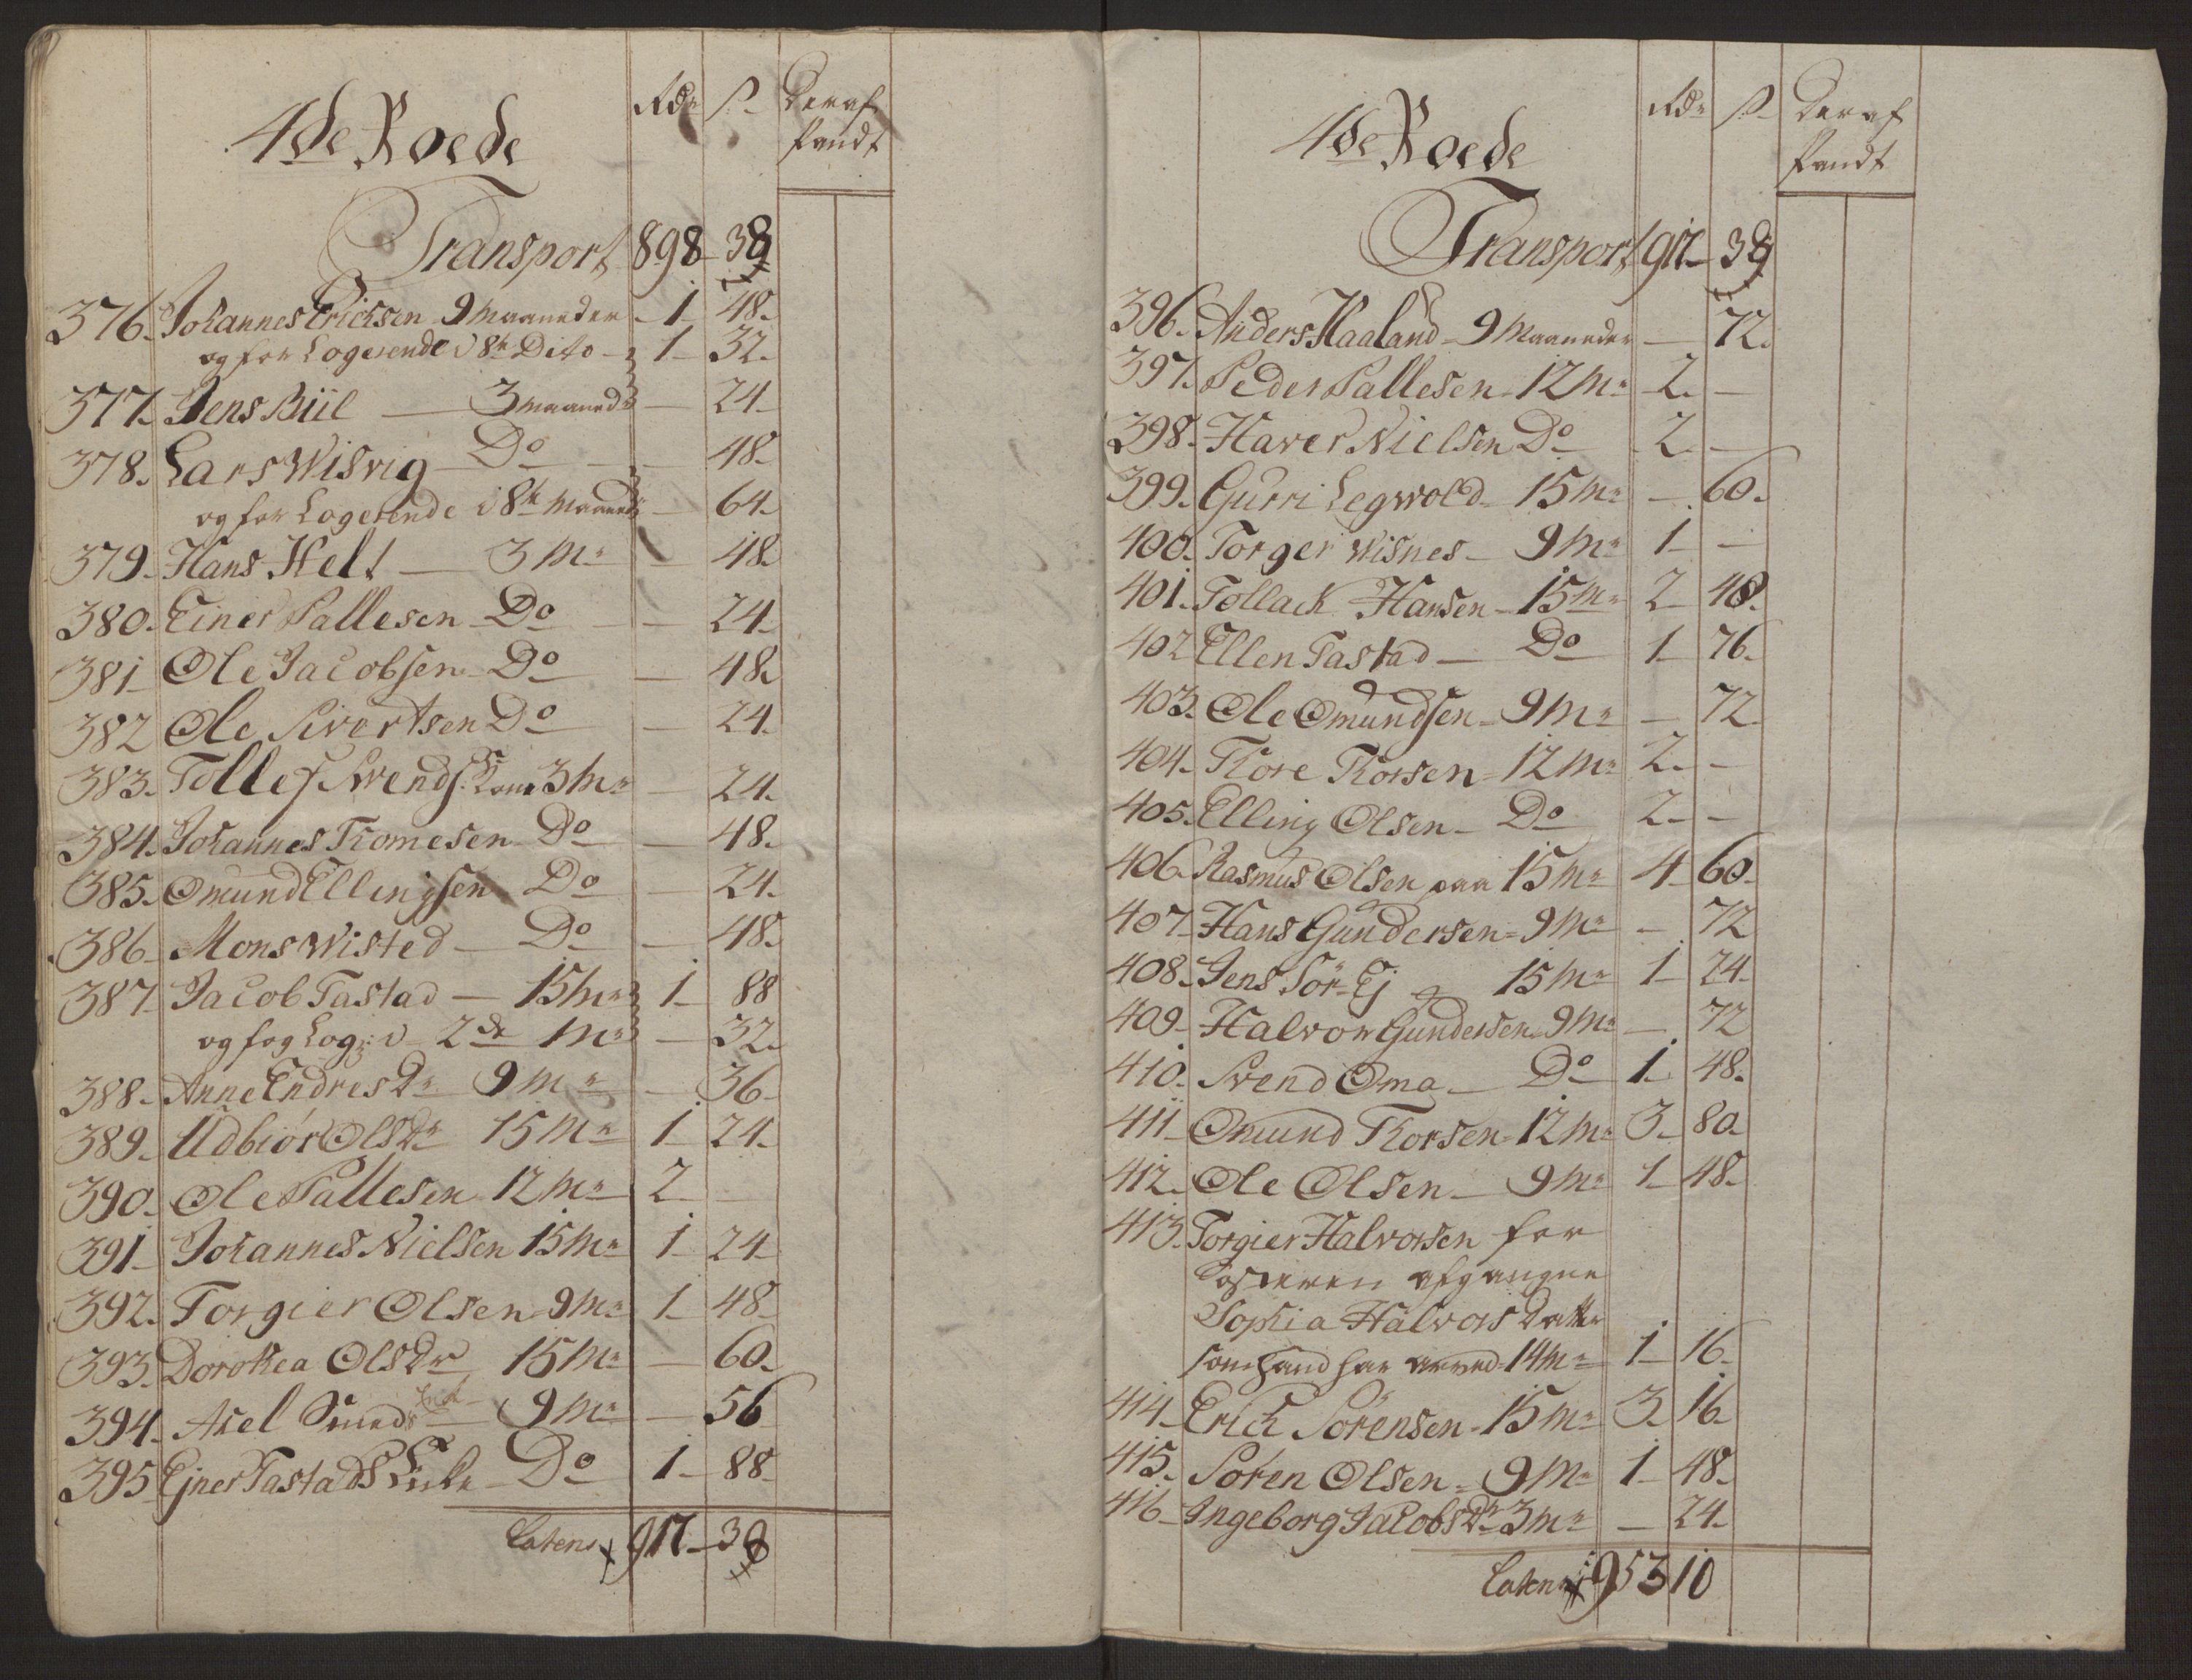 4de Roede
Rdr s
Deraf
Pandt
Transport 898 38
376. Johannes Erichsen 9 Maaneder 1 48.
og for Logerende i 8te Dito 1 32.
377. Jens Biil 3 maaneder 24
378. Lars Wisvig Do 48
og for Logerende i 8te Maaneder 64.
379. Hans Helt 3 Mr 48
380. Einer Pallesen Do 24
381 Ole Jacobsen Do 48
382 Ole Sivertsen Do 24
383. Tollef Svends: Kone 3 Mr 24.
384. Johannes Thomesen Do 48.
385. Omund Ellingsen Do 24.
386. Mons Wisted Do 48.
387 Jacob Tastad 15 Mr 1 88
og for Log: i 2de Mr 32.
388. Anne Endres Dr 9 Mr 36
389. Udbiør Ols Dr 15 Mr 1 24.
390. Ole Pallesen 12 Mr 2
391 Johannes Nielsen 15 Mr 1 24
392. Torgier Olsen 9 Mr 1 48
393. Dorothea Ols Dr 15 Mr 60.
394. Axel Smeds 9 Mr 56
395 Ejner Tastads Enke Do 1 88
Latens 917 38
4de Roede
Rdr s
Deraf
Pandt
Transport 917 38
396. Anders Haaland 9 Maaneder 72.
397. Peder Pallesen 12 Mr 2.
398. Haver Nielsen Do 2.
399. Gurri Legwold 15 Mr 60.
400. Torger Wisnes 9 Mr 1
401. Tollack Hansen 15 Mr 2 48.
402 Ellen Tastad Do 1 76.
403. Ole Omundsen 9 Mr 72
404. Thore Thorsen 12 Mr 2.
405. Elling Olsen Do 2
406. Rasmus Olsen paa 15 Mr 4 60.
407 Hans Gundersen 9 Mr 72
408. Jens Sør-Ej 15 Mr 1 24.
409 Halvor Gundersen 9 Mr 72
410. Svend Oma Do 1. 48.
411 Omund Thorsen 12 Mr 3 80
412. Ole Olsen 9 Mr 1 48.
413. Torgier Halvorsen for
Søsteren afgangne
Sophia Halvors Datter
som hand har arved 14 Mr 1 16
414 Erich Sørensen 15 Mr 3 16
415. Søren Olsen 9 Mr 1 48.
416 Ingeborg Jacobs Dr 3 Mr 24.
Latens 953 10